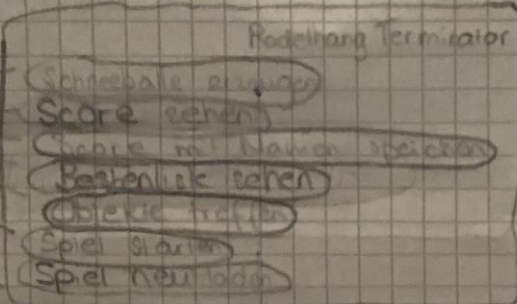 Rodelhang Terminator
Schneebälle erzeugen
Score sehen
Score mit Namen speichern
Bestenliste sehen
Objekte treffen
Spiel starten
Spiel neu laden